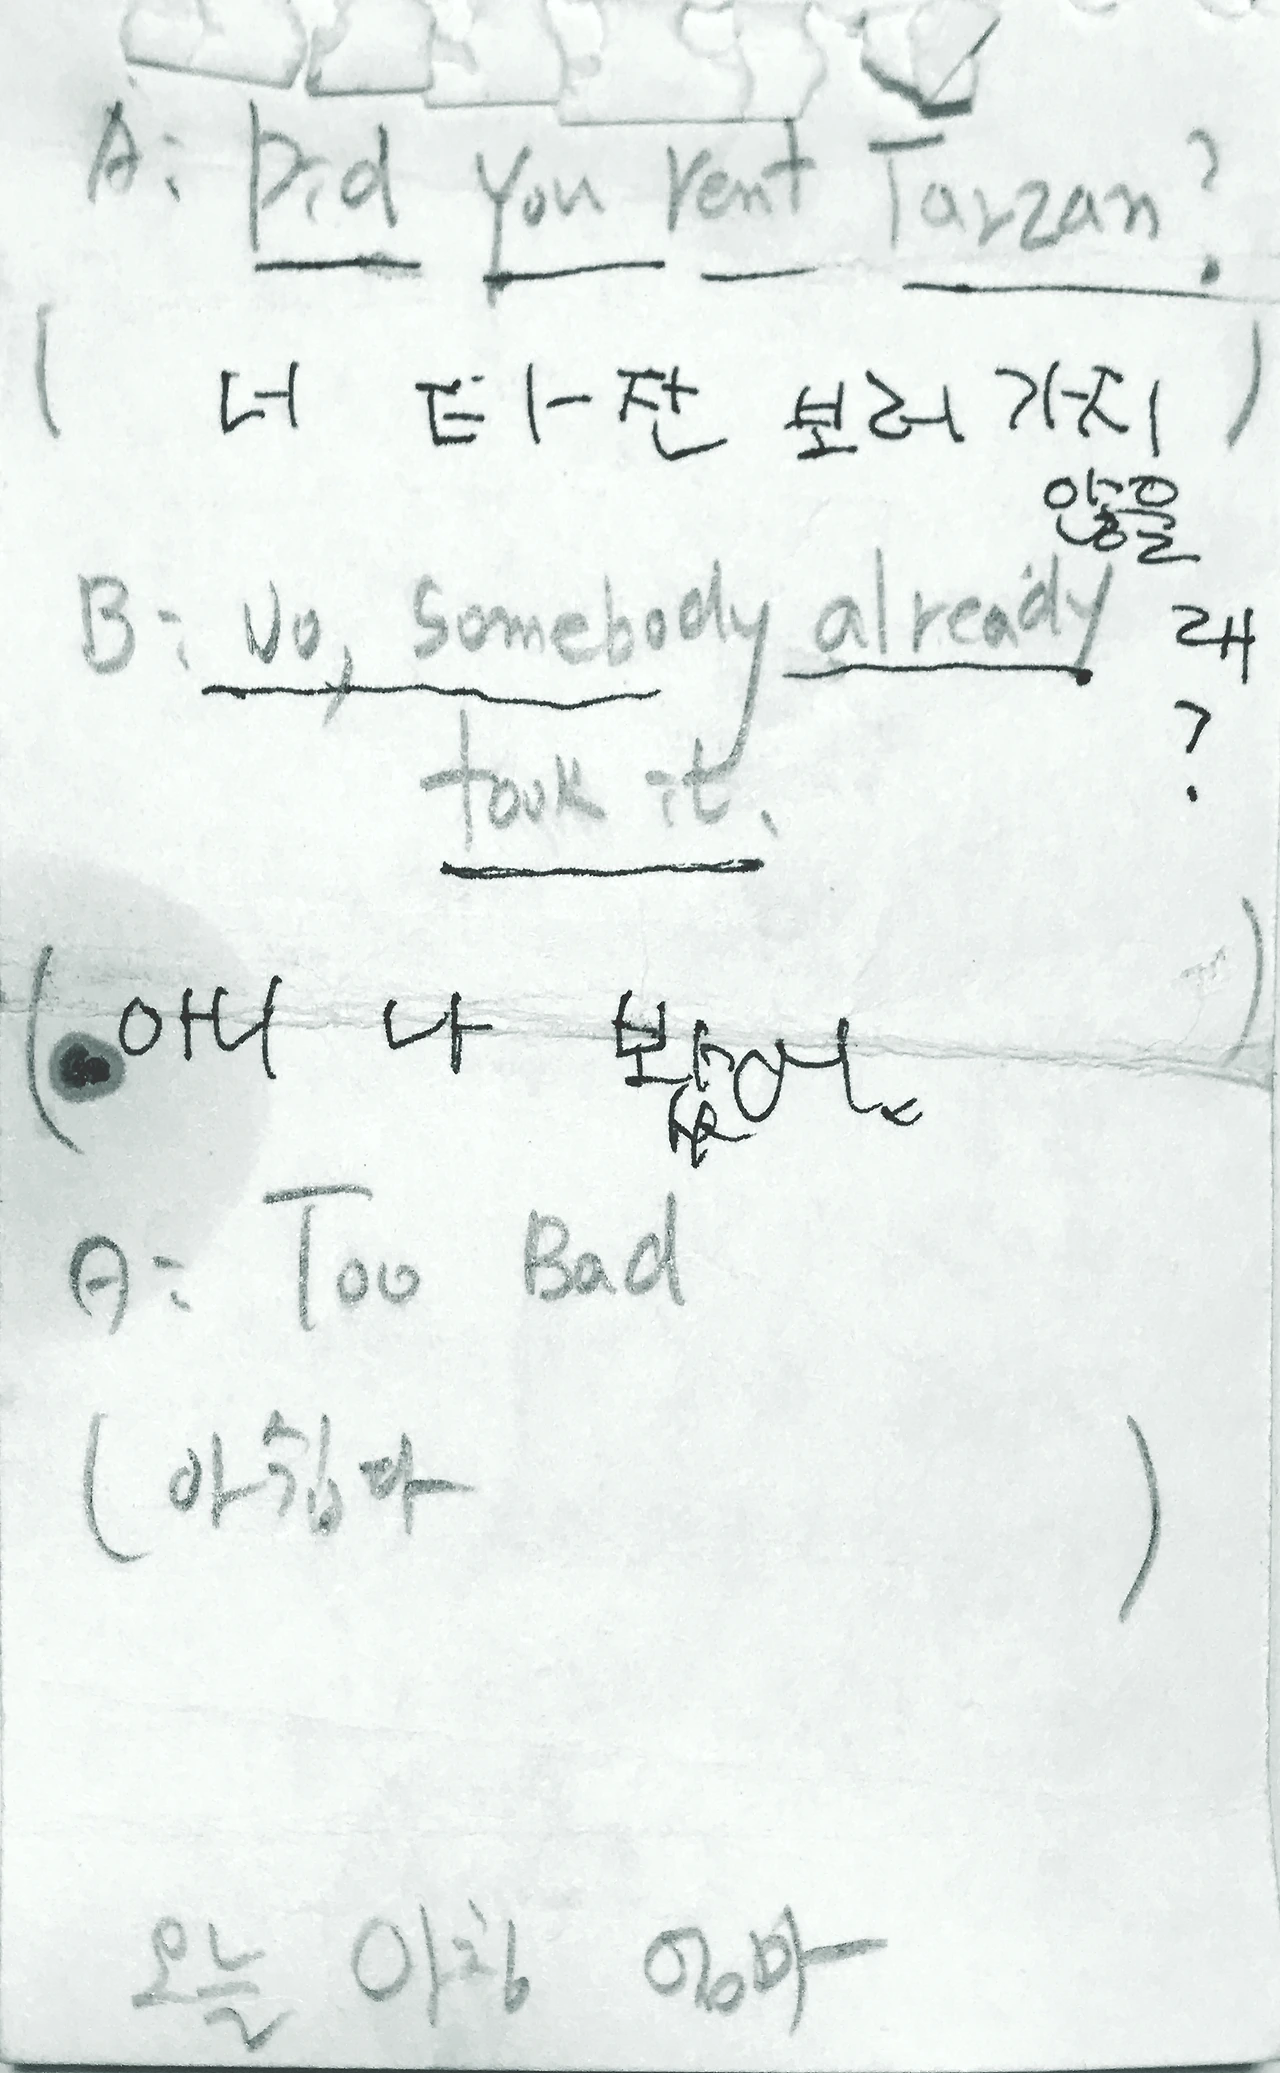 A: Did you rent Tarzan?
(너 타잔 보러 가지 )
않을
래
?
B: No, Somebody already
took it.
( 아니 나 봤어. )
A: Too Bad
( 아침마 )
오늘 아침 엄마